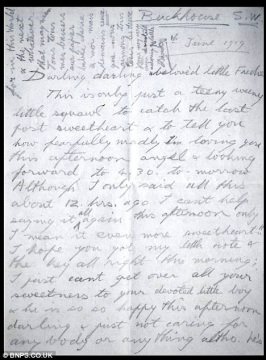 Buckhouse S.W.
June 1919
Darling darling beloved little Freda
This is only just a teeny weeny
little squawk to catch the last
post sweetheart & to tell you
how fearfully madly I'm loving you
this afternoon angel & looking
forward to 4.30. to-morrow
Although I only said all this
about 12. hrs. ago I can't help
saying it all again this afternoon only
I mean it even more sweetheart!!
I hope you got my little note &
the key all right this morning;
I just can't get over all your
sweetness to your devoted little boy
& he is so so happy this afternoon
darling & just not caring for
any body or any thing altho. he's
for in this World
& the next
© BNPS.CO.UK